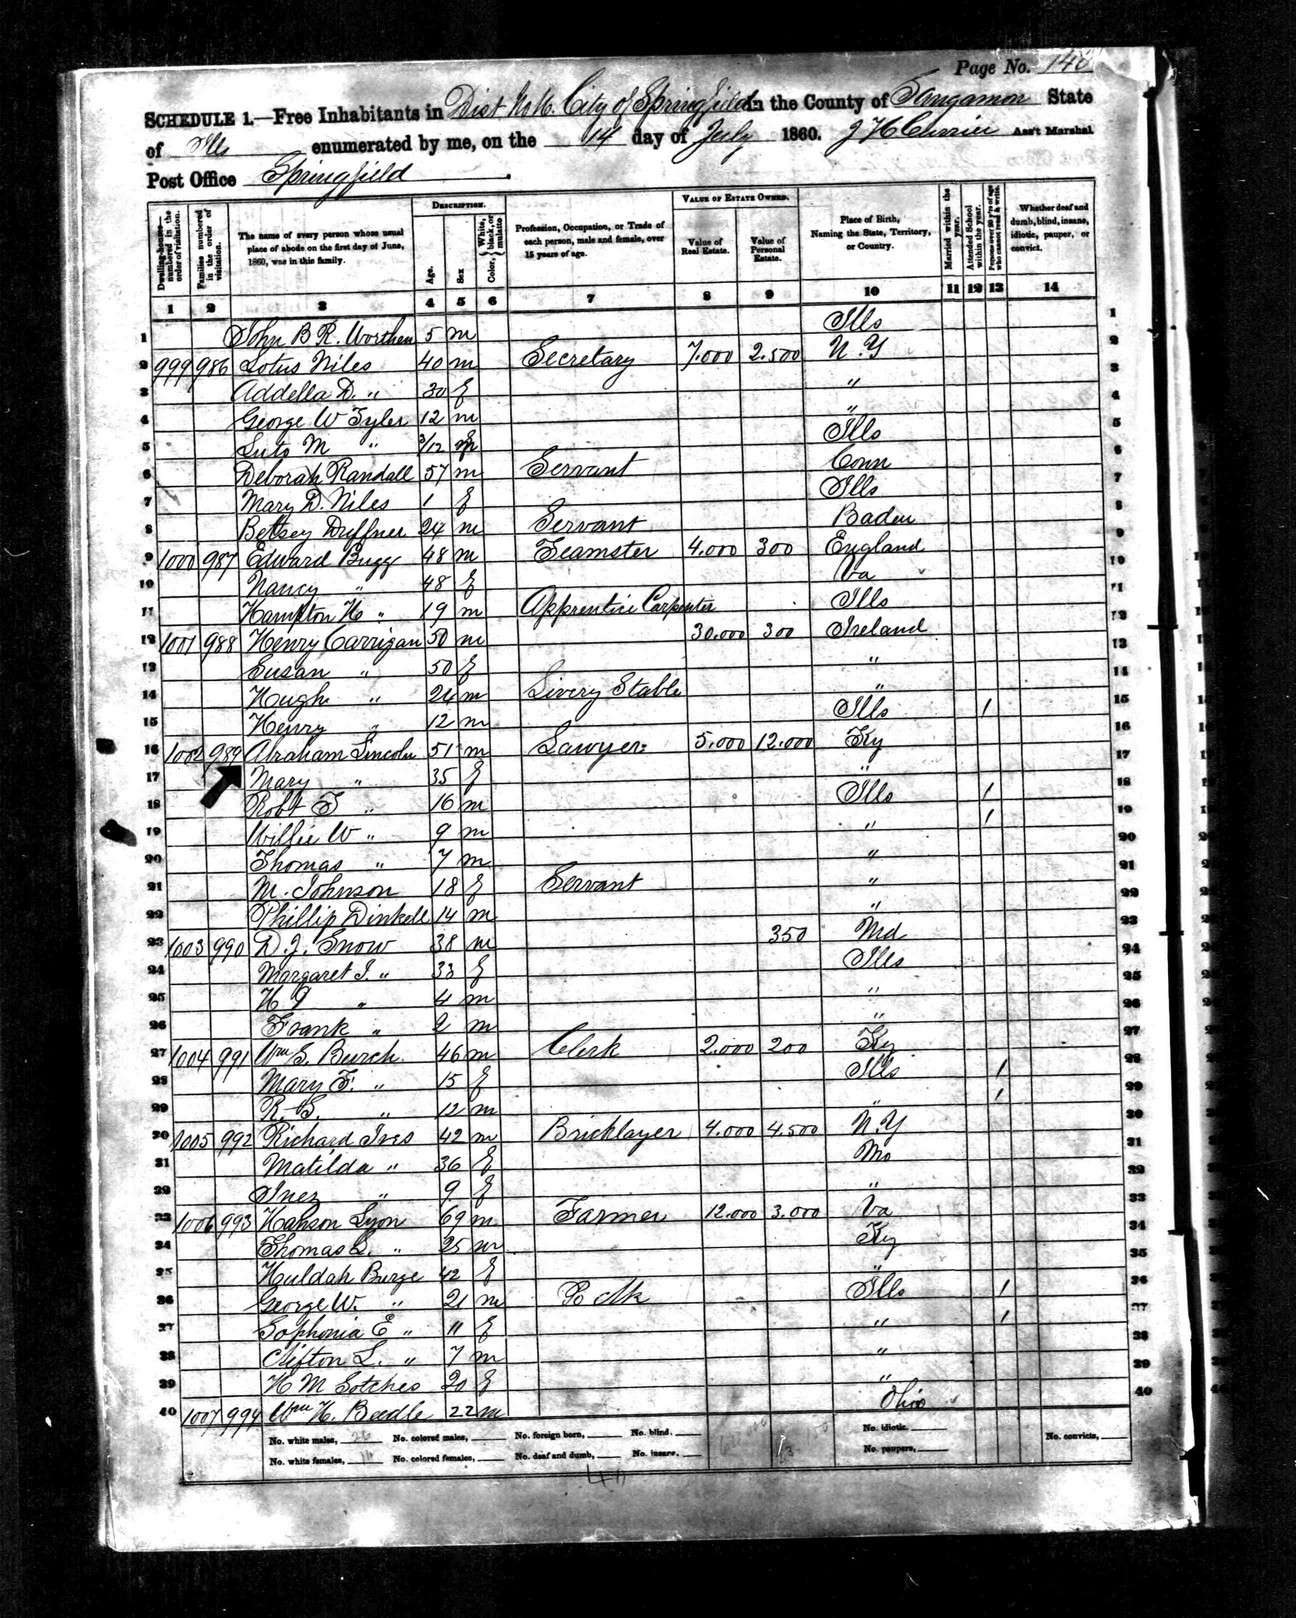 Page No. 140
SCHEDULE 1.—Free Inhabitants in Dist No 16. City of Springfield in the County of Sangamon State
of Ills enumerated by me, on the 14 day of July 1860. J H Currier Ass't Marshal.
Post Office Springfield.
Dwelling-houses numbered in the order of visitation.
Families numbered in the order of visitation.
The name of every person whose usual place of abode on the first day of June, 1860, was in this family.
DESCRIPTION.
Age.
Sex
Color, White, black, or mulatto
Profession, Occupation, or Trade of each person, male and female, over 15 years of age.
VALUE OF ESTATE OWNED.
Value of Real Estate.
Value of Personal Estate.
Place of Birth, Naming the State, Territory, or Country.
Married within the year.
Attended School within the year.
Persons over 20 y'rs of age who cannot read & write.
Whether deaf and dumb, blind, insane, idiotic, pauper, or convict.
1 2 3 4 5 6 7 8 9 10 11 12 13 14
1 John B R. Worthen 5 m Ills 1
2 999 986 Lotus Niles 40 m Secretary 7.000 2.500 N.Y 2
3 Addella D. " 30 f " 3
4 George W Tyler 12 m " 4
5 M " 3/12 Ills 5
6 Deborah Randall 57 m Servant Conn 6
7 Mary D. Niles 1 f Ills 7
8 Betsey Duffner 24 m Servant Baden 8
9 1000 987 Edward Bugg 48 m Teamster 4.000 300 England 9
10 Nancy " 48 f Va 10
11 Hampton H " 19 m Apprentice Carpenter Ills 11
12 1001 988 Henry Carrigan 50 m 30.000 300 Ireland 12
13 Susan " 50 f " 13
14 Hugh " 24 m Livery Stable " 14
15 Henry " 12 m Ills / 15
16 1002 989 Abraham Lincoln 51 m Lawyer 5.000 12.000 Ky 16
17 Mary " 35 f " 17
18 Robt T " 16 m Ills / 18
19 Willie W " 9 m " / 19
20 Thomas " 7 m " 20
21 M. Johnson 18 f Servant " 21
22 Phillip Dinkell 14 m " 22
23 1003 990 D. J. Snow 38 m 350 Md 23
24 Margaret J. " 33 f Ills 24
25 H J " 4 m " 25
26 Frank " 2 m " 26
27 1004 991 Wm S. Burch 46 m Clerk 2.000 200 Ky 27
28 Mary F. " 15 f Ills / 28
29 R. S. " 12 m " / 29
30 1005 992 Richard Ives 42 m Bricklayer 4.000 4.500 N.Y 30
31 Matilda " 36 f Mo 31
32 Inez " 9 f " 32
33 1006 993 Hanson Lyon 69 m Farmer 12.000 3.000 Va 33
34 Thomas L. " 25 m Ky 34
35 Huldah Burge 42 f " 35
36 George W. " 21 m Ills / 36
37 Sophonia E " 11 f " / 37
38 Clifton L. " 7 m " 38
39 H M Sotches 20 f " 39
40 1007 994 Wm H. Beedle 22 m Ohio 40
No. white males, 26 No. colored males, No. foreign born, No. blind. No. idiotic.
No. white females, No. colored females, No. deaf and dumb, No. insane, No. paupers, No. convicts,